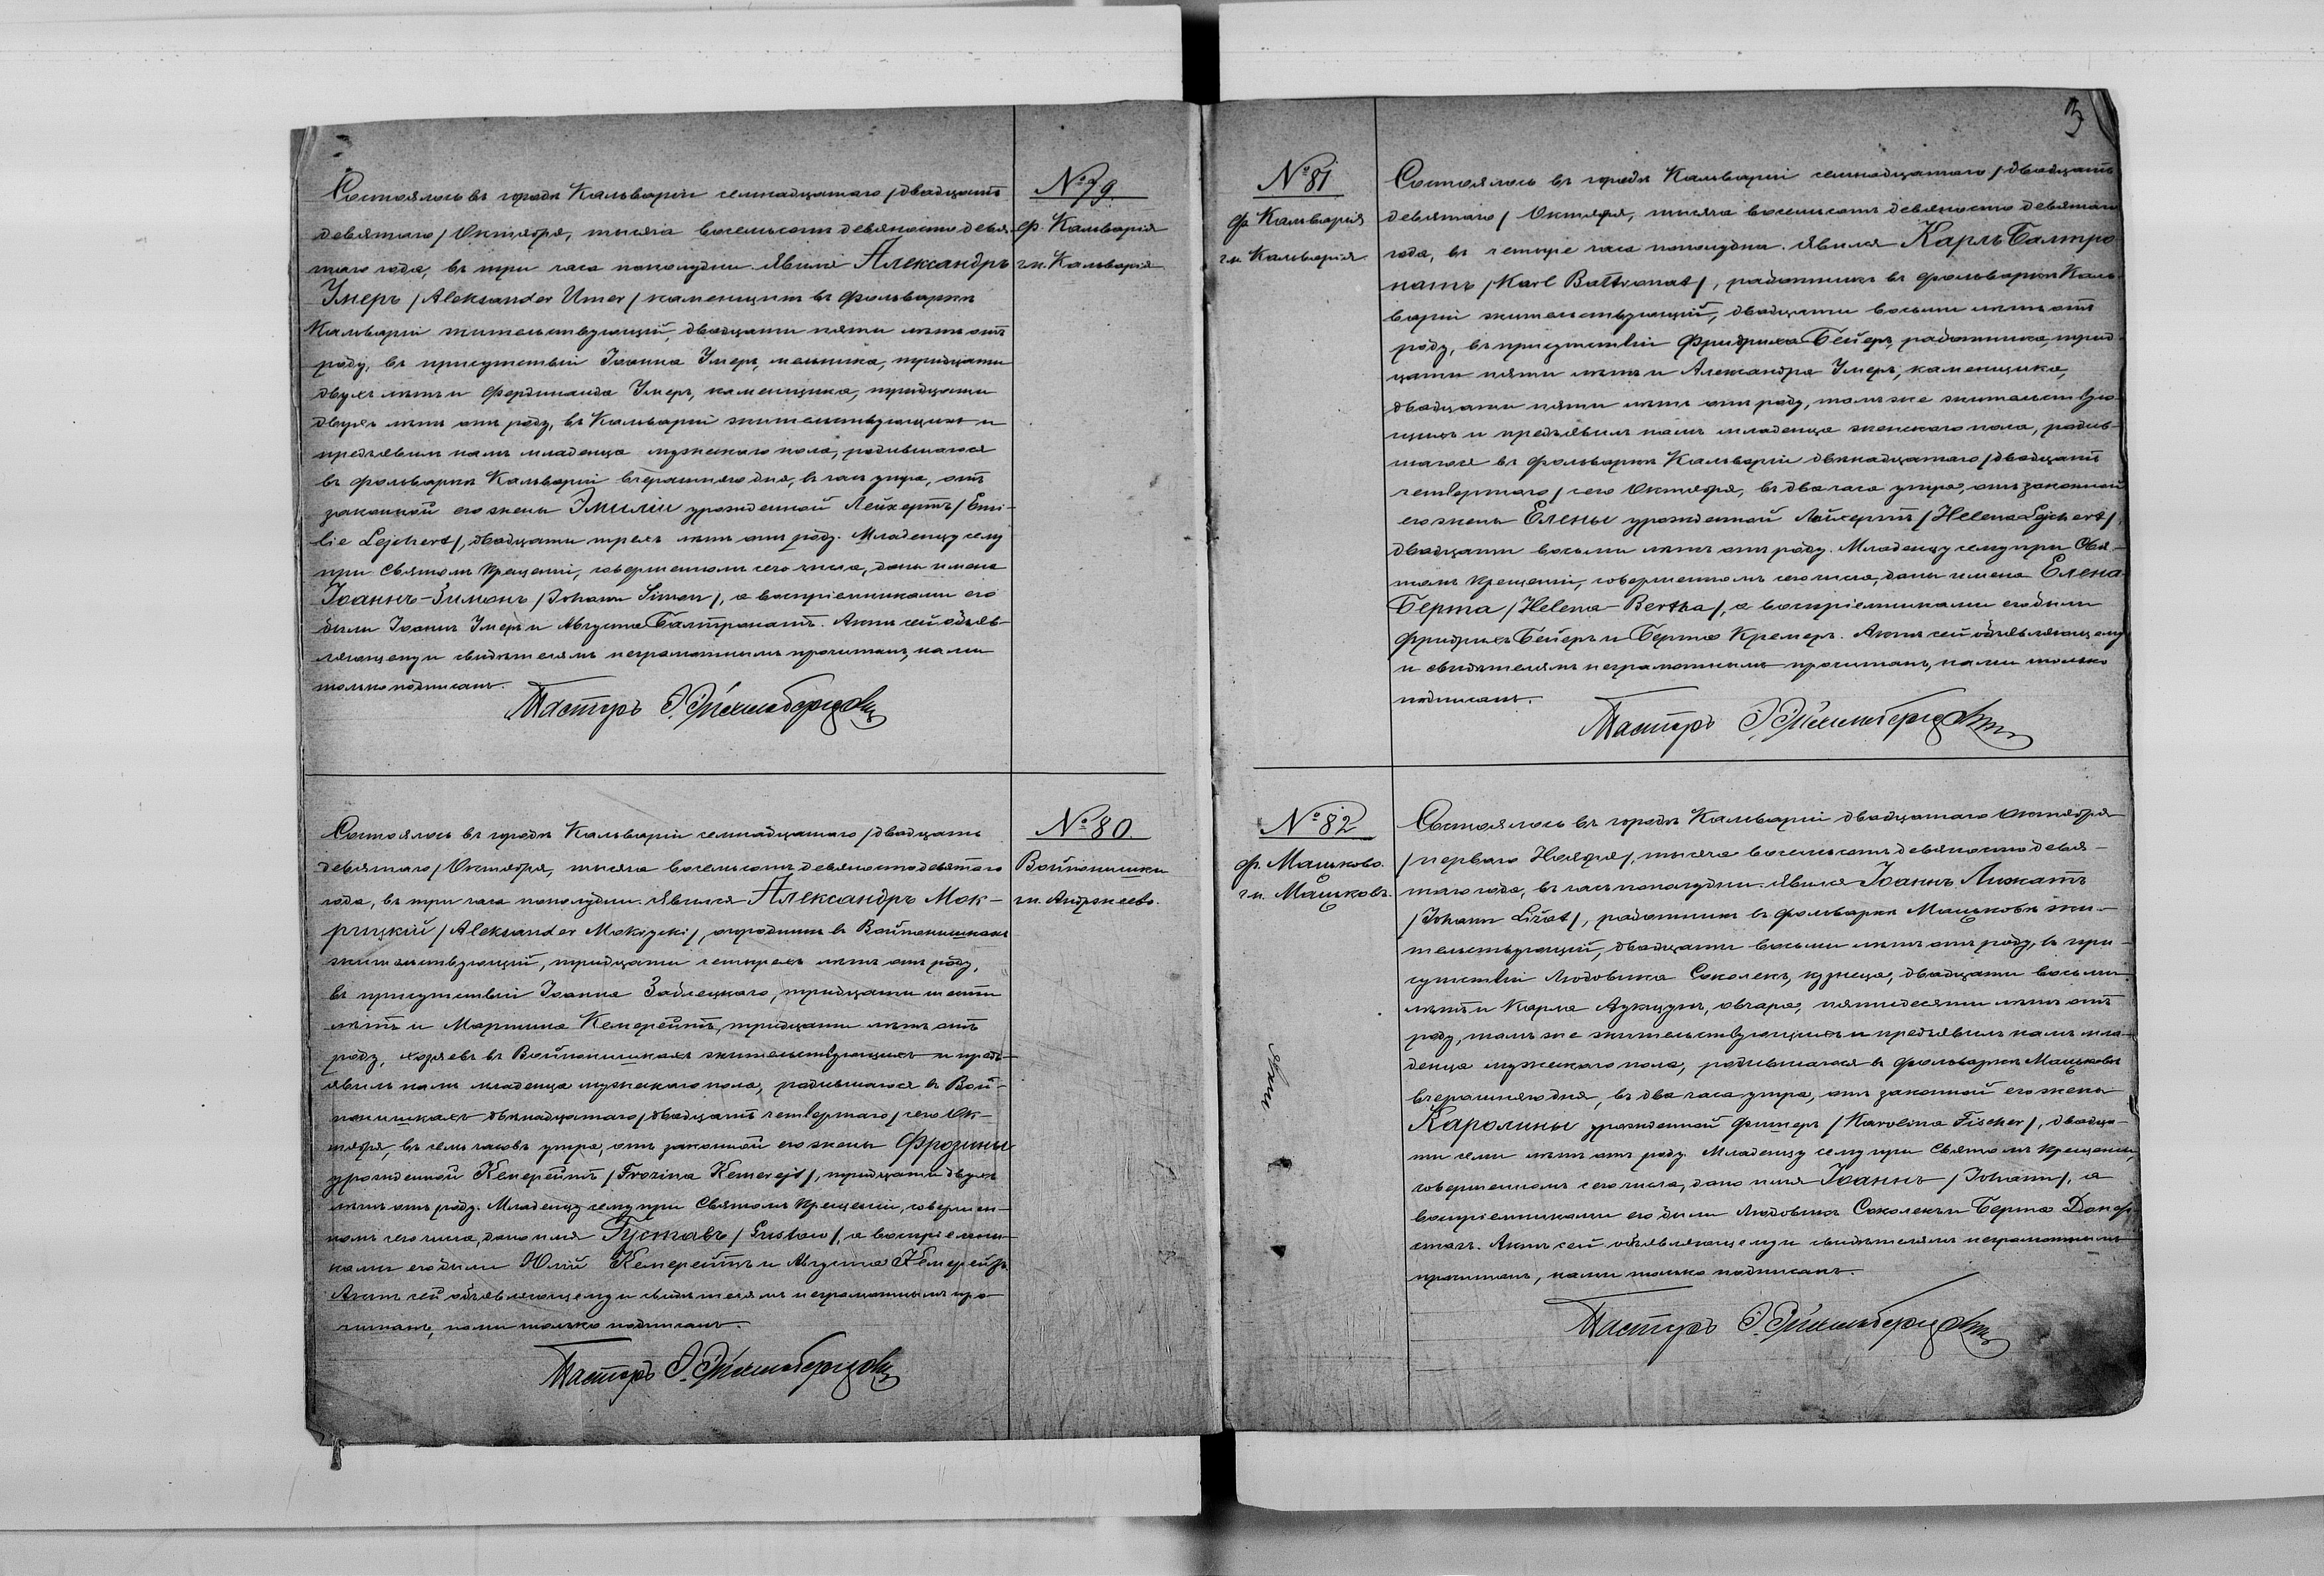 Состоялось въ городѣ Кальваріи семнадцатаго /двадцать
девятаго/ Октября, тысяча восемьсотъ девяносто девя-
таго года, въ три часа пополудни. Явился Александръ
Умеръ /Aleksander Umer/ каменщикъ въ фольваркѣ
Кальваріи жительствующій, двадцати пяти лѣтъ отъ
роду, въ присутствіи Іоанна Умеръ, мельника, тридцати
двухъ лѣтъ и Фердинанда Умеръ, каменщика, тридцати
двухъ лѣтъ отъ роду, въ Кальваріи жительствующихъ и
предъявилъ намъ младенца мужескаго пола, родившагося
въ фольваркѣ Кальваріи вчерашняго дня, въ часъ утра, отъ
законной его жены Эмиліи урожденной Лейхертъ /Emi-
lie Lejchert/, двадцати трехъ лѣтъ отъ роду. Младенцу сему
при Святомъ Крещеніи, совершенномъ сего числа, даны имена
Іоаннъ-Зимонъ /Johann Simon/, а воспріемниками его
были Іоаннъ Умеръ и Августа Балтронатъ. Актъ сей объяв-
ляющему и свидѣтелямъ неграмотнымъ прочитанъ, нами
только подписанъ.
Пасторъ
№ 79.
ф. Кальварія
гм. Кальварія
Состоялось въ городѣ Кальваріи семнадцатаго /двадцать
девятаго/ Октября, тысяча восемьсотъ девяносто девятаго
года, въ три часа пополудни. Явился Александръ Мок-
рицкій /Aleksander Mokrzycki/, огородникъ въ Войпонишкахъ
жительствующій, тридцати четырехъ лѣтъ отъ роду,
въ присутствіи Іоанна Заблецкаго, тридцати шести
лѣтъ и Мартина Кемерейтъ, тридцати лѣтъ отъ
роду, хозяевъ въ Войпонишкахъ жительствующихъ и предъ-
явилъ намъ младенца мужескаго пола, родившагося въ Вой-
понишкахъ двѣнадцатаго /двадцать четвертаго/ сего Ок-
тября, въ семь часовъ утра, отъ законной его жены Фрозины
урожденной Кемерейтъ /Frozina Kemerejt/, тридцати двухъ
лѣтъ отъ роду. Младенцу сему при Святомъ Крещеніи, совершен-
номъ сего числа, дано имя Густавъ /Gustaw/, а воспріемни-
ками его были Юлій Кемерейтъ и Августа Кемерейтъ.
Актъ сей объявляющему и свидѣтелямъ неграмотнымъ про-
читанъ, нами только подписанъ.
Пасторъ
№ 80.
Войпонишки
гм. Андржеево.
№ 81
ф. Кальварія
гм. Кальварія.
Состоялось въ городѣ Кальваріи семнадцатаго /двадцать
девятаго/ Октября, тысяча восемьсотъ девяносто девятаго
года, въ четыре часа пополудни. Явился Карлъ Балтро-
натъ /Karl Baltronat/, работникъ въ фольваркѣ Каль-
варіи жительствующій, двадцати восьми лѣтъ отъ
роду, въ присутствіи Фридриха Бейеръ, работника, трид-
цати пяти лѣтъ и Александра Умеръ, каменщика,
двадцати пяти лѣтъ отъ роду, тамъ же жительствую-
щихъ и предъявилъ намъ младенца женскаго пола, родив-
шагося въ фольваркѣ Кальваріи двѣнадцатаго /двадцать
четвертаго/ сего Октября, въ два часа утра, отъ законной
его жены Елены урожденной Лейхертъ /Helena Lejchert/,
двадцати восьми лѣтъ отъ роду. Младенцу сему при Свя-
томъ Крещеніи, совершенномъ сего числа, даны имена Елена
Берта /Helena-Bertha/, а воспріемниками его были
Фридрихъ Бейеръ и Берта Кремеръ. Актъ сей объявляющему
и свидѣтелямъ неграмотнымъ прочитанъ, нами только
подписанъ.
Пасторъ
№ 82
ф. Мацьково.
гм. Мацьковъ.
Состоялось въ городѣ Кальваріи двадцатаго Октября
/перваго Ноября/, тысяча восемьсотъ девяносто девя-
таго года, въ часъ пополудни. Явился Іоаннъ Лижатъ
/Johann Liżat/, работникъ въ фольваркѣ Мацьковѣ жи-
тельствующій, двадцати восьми лѣтъ отъ роду, въ при-
сутствіи Людовика Соколекъ, кузнеца, двадцати восьми
лѣтъ и Карла Аукщунъ, овчара, пятидесяти лѣтъ отъ
роду, тамъ же жительствующихъ и предъявилъ намъ мла-
денца мужескаго пола, родившагося въ фольваркѣ Мацьковѣ
вчерашняго дня, въ два часа утра, отъ законной его жены
Каролины урожденной Фишеръ /Karolina Fischer/, двадца-
ти семи лѣтъ отъ роду. Младенцу сему при Святомъ Крещеніи,
совершенномъ сего числа, дано имя Іоаннъ /Johann/, а
воспріемниками его были Людовикъ Соколекъ и Берта
Актъ сей объявляющему и свидѣтелямъ неграмотнымъ
прочитанъ, нами только подписанъ.
Пасторъ